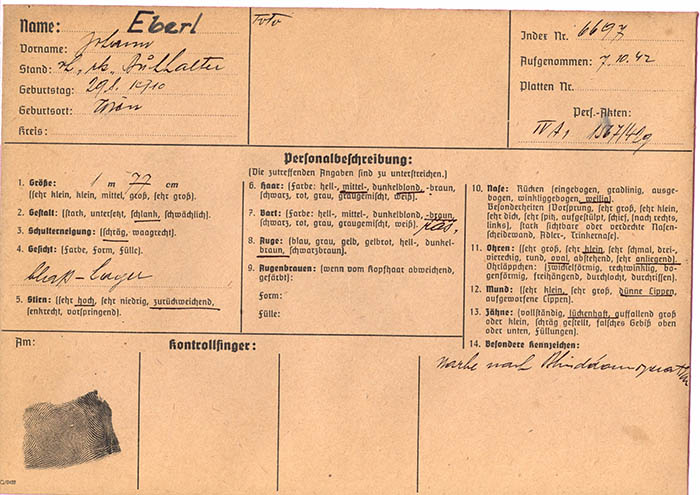 Name: Eberl
Vorname: Johann
Stand:
Geburtstag: 29.8. 1910
Geburtsort: Wien
Kreis:
Foto
Index Nr. 6697
Aufgenommen: 7.10.42
Platten Nr.
Pers.-Akten:
IV A 1
Personalbeschreibung:
(Die zutreffenden Angaben sind zu unterstreichen.)
1. Größe: 1 m 77 cm
(sehr klein, klein, mittel, groß, sehr groß).
2. Gestalt: (stark, untersetzt, schlank, schwächlich).
3. Schulterneigung: (schräg, waagrecht).
4. Gesicht: (Farbe, Form, Fülle).
blaß-
5. Stirn: (sehr hoch, sehr niedrig, zurückweichend,
senkrecht, vorspringend).
6. Haar: (Farbe: hell-, mittel-, dunkelblond, -braun,
schwarz, rot, grau, graugemischt, weiß).
7. Bart: (Farbe: hell-, mittel-, dunkelblond, -braun,
schwarz, rot, grau, graugemischt, weiß). ras.
8. Auge: (blau, grau, gelb, gelbrot, hell-, dunkel-
braun, schwarzbraun).
9. Augenbrauen: (wenn vom Kopfhaar abweichend,
gefärbt):
Form:
Fülle:
10. Nase: Rücken (eingebogen, gradlinig, ausge-
bogen, winkliggebogen, wellig).
Besonderheiten (Vorsprung, sehr groß, sehr klein,
sehr dick, sehr spitz, aufgestülpt, schief, (nach rechts,
links), stark sichtbare oder verdeckte Nasen-
scheidewand, Adler-, Trinkernase).
11. Ohren: (sehr groß, sehr klein, sehr schmal, drei-
viereckig, rund, oval, abstehend, sehr anliegend).
Ohrläppchen: (zwickelförmig, rechtwinklig, bo-
genförmig, freihängend, durchlocht, durchrissen).
12. Mund: (sehr klein, sehr groß, dünne Lippen,
aufgeworfene Lippen).
13. Zähne: (vollständig, lückenhaft, auffallend groß
oder klein, schräg gestellt, falsches Gebiß oben
oder unten, Füllungen).
14. Besondere Kennzeichen:
Narbe nach
Am:
Kontrollfinger: